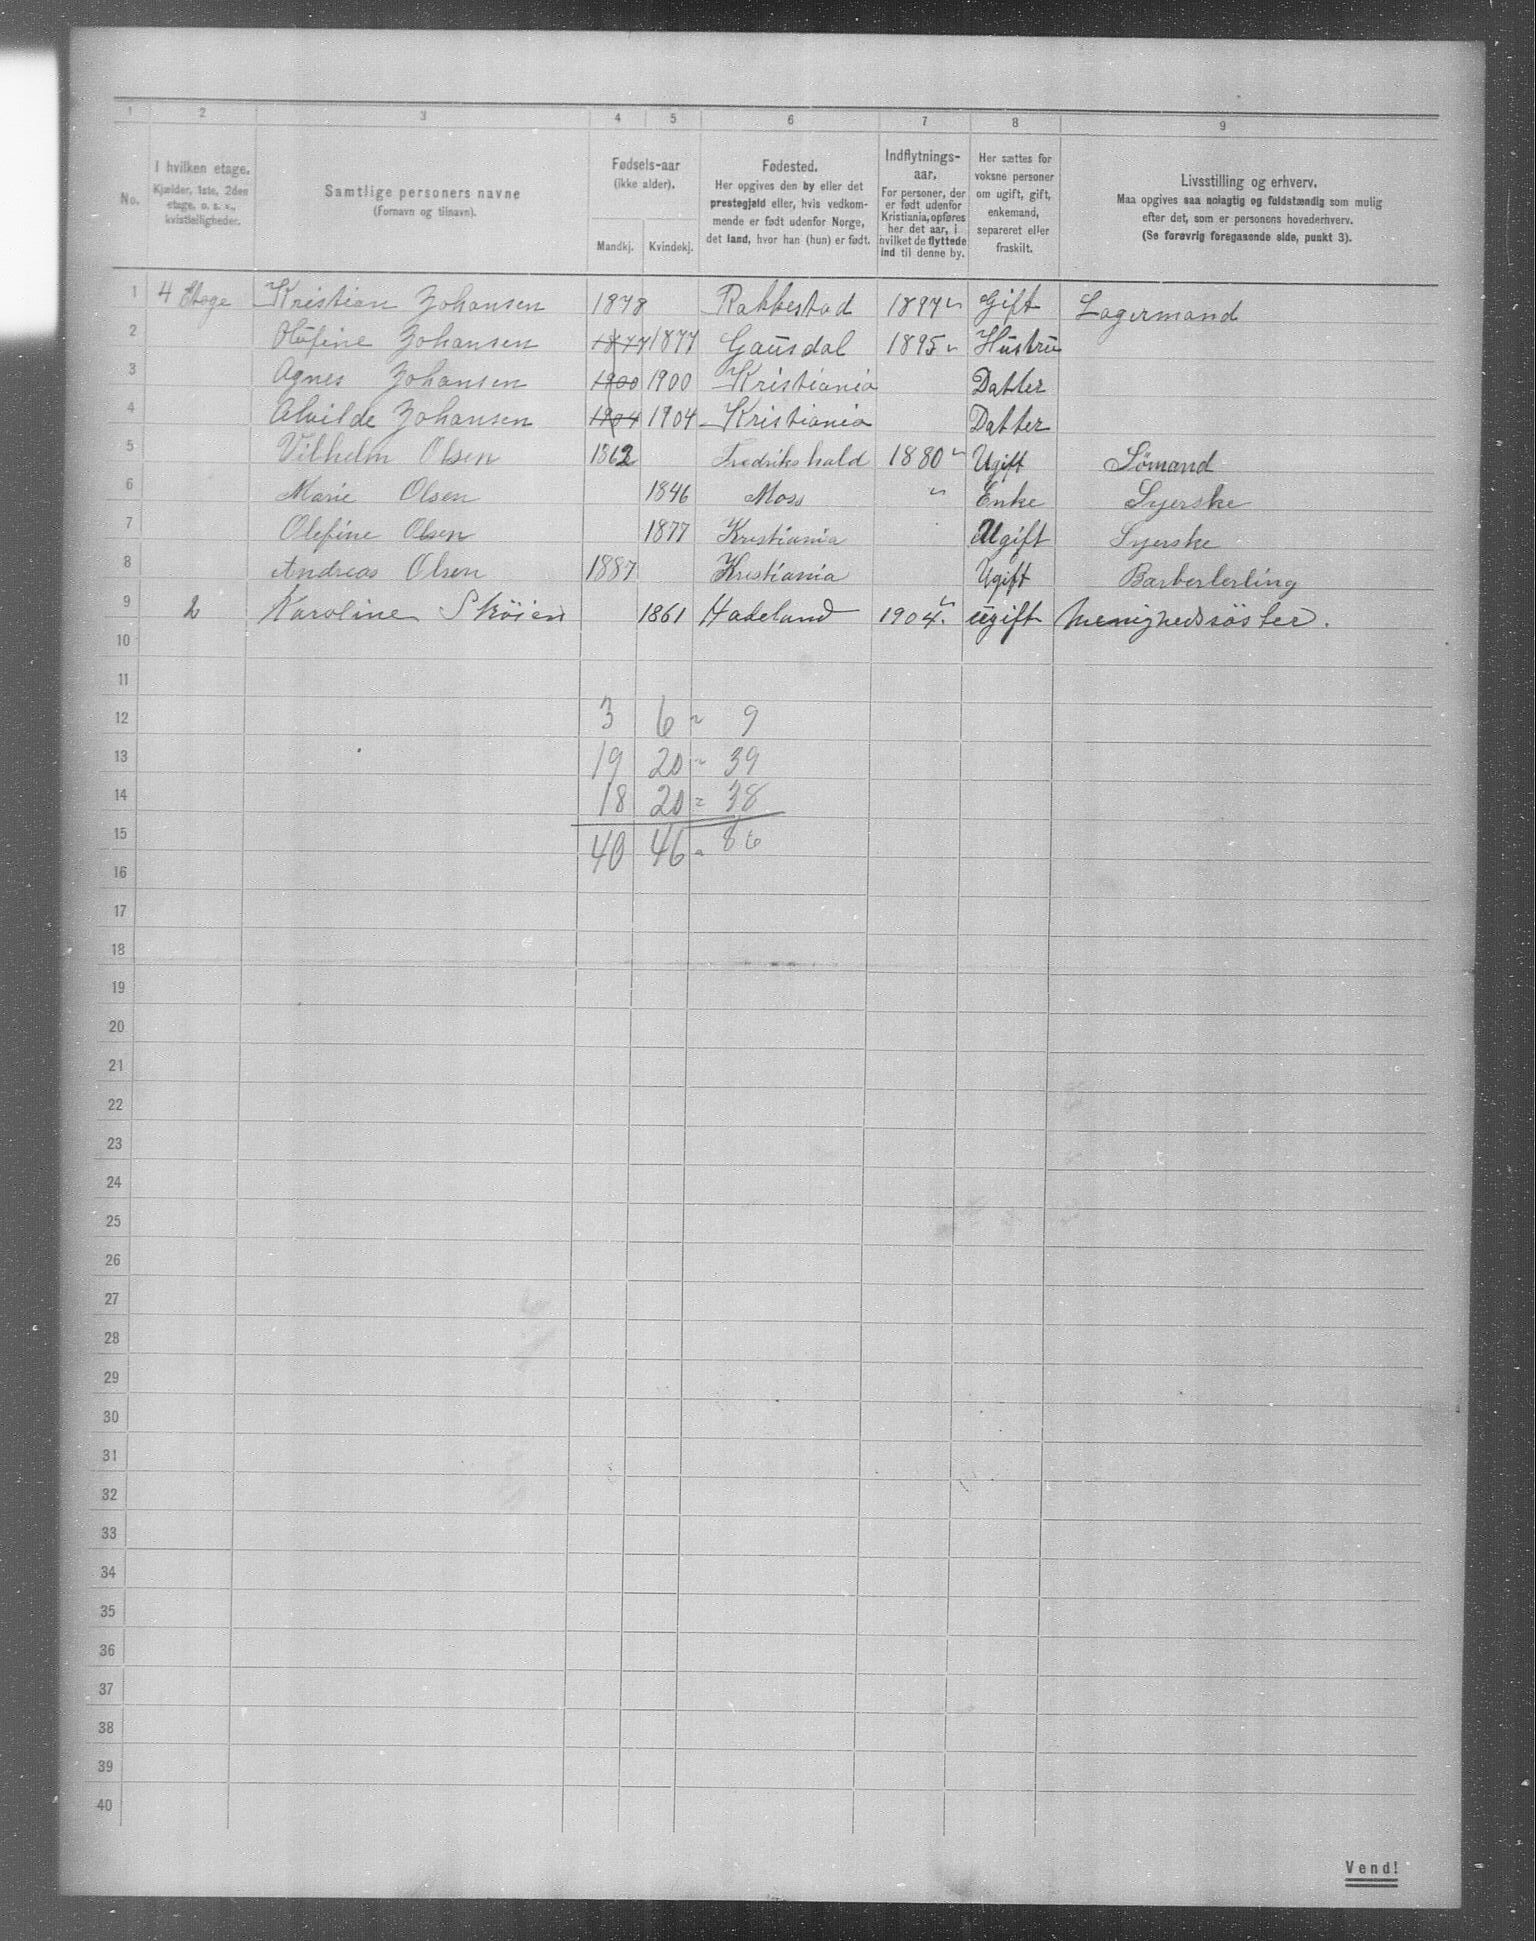 1 2 3 4 5 6 7 8 9
No. I hvilken etage. Kjælder, 1ste, 2den etage, o. s. v., kvistleiligheder. Samtlige personers navne (Fornavn og tilnavn). Fødsels-aar (ikke alder). Mandkj. Kvindekj. Fødested. Her opgives den by eller det prestegjeld eller, hvis vedkommende er født udenfor Norge, det land, hvor han (hun) er født. Indflytnings-aar. For personer, der er født udenfor Kristiania, opføres her det aar, i hvilket de flyttede ind til denne by. Her sættes for voksne personer om ugift, gift, enkemand, separeret eller fraskilt. Livsstilling og erhverv. Maa opgives saa nøiagtig og fuldstændig som mulig efter det, som er personens hovederhverv. (Se forøvrig foregaaende side, punkt 3).
1 4 Etage Kristian Johansen 1878 Rakkestad 1897 Gift Lagermand
2 Olufine Johansen 1877 1877 Gausdal 1895 Hustru
3 Agnes Johansen 1900 1900 Kristiania Datter
4 Alvilde Johansen 1904 1904 Kristiania Datter
5 Vilhelm Olsen 1862 Fredrikshald 1880 Ugift Sömand
6 Marie Olsen 1846 Moss " Enke Syerske
7 Olefine Olsen 1877 Kristiania Ugift Syerske
8 Andreas Olsen 1887 Kristiania Ugift Barberlerling
9 2 Karoline Sköien 1861 Hadeland 1904 ugift Menighedssöster.
10
11
12 3 6 = 9
13 19 20 = 39
14 18 20 = 38
15 40 46 = 86
16
17
18
19
20
21
22
23
24
25
26
27
28
29
30
31
32
33
34
35
36
37
38
39
40
Vend!